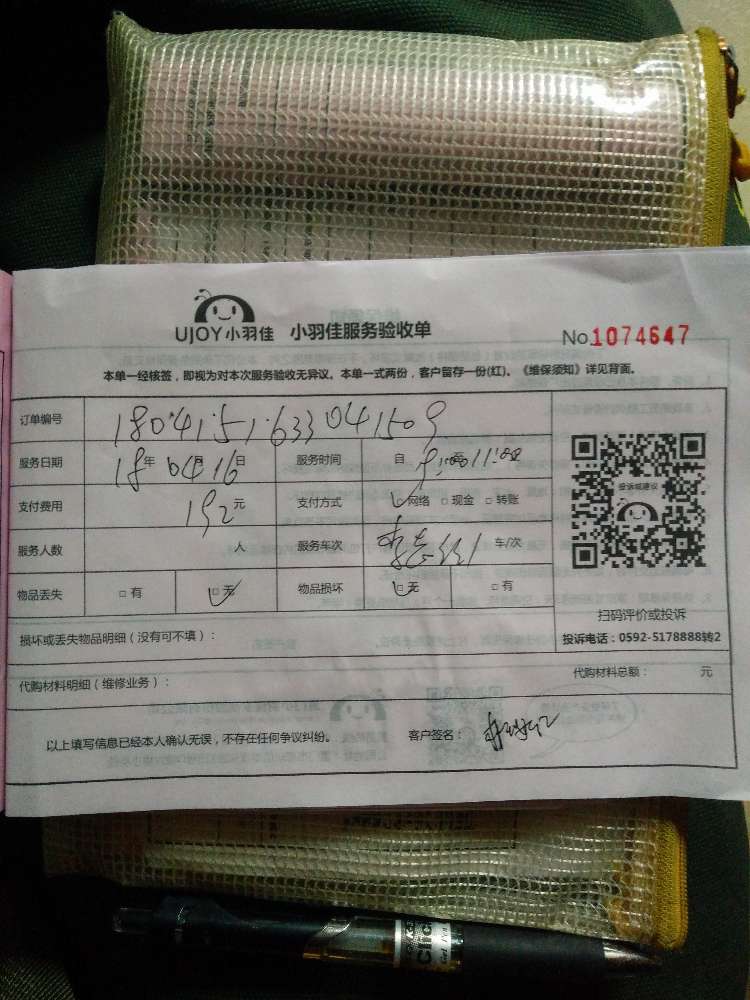 UJOY小羽佳 小羽佳服务验收单 No.1074647
本单一经核签，即视为对本次服务验收无异议。本单一式两份，客户留存一份(红)。《维保须知》详见背面。
订单编号 180415163304 1509
服务日期 18年 04月16日 服务时间 自 9:00至11:00
支付费用 192元 支付方式 □网络 □现金 □转账
服务人数 人 服务车次 车/次
物品丢失 □有 □无 物品损坏 □无 □有
投诉或建议
扫码评价或投诉
投诉电话：0592-5178888转2
损坏或丢失物品明细（没有可不填）：
代购材料明细（维修业务）： 代购材料总额： 元
以上填写信息已经本人确认无误，不存在任何争议纠纷。 客户签名：